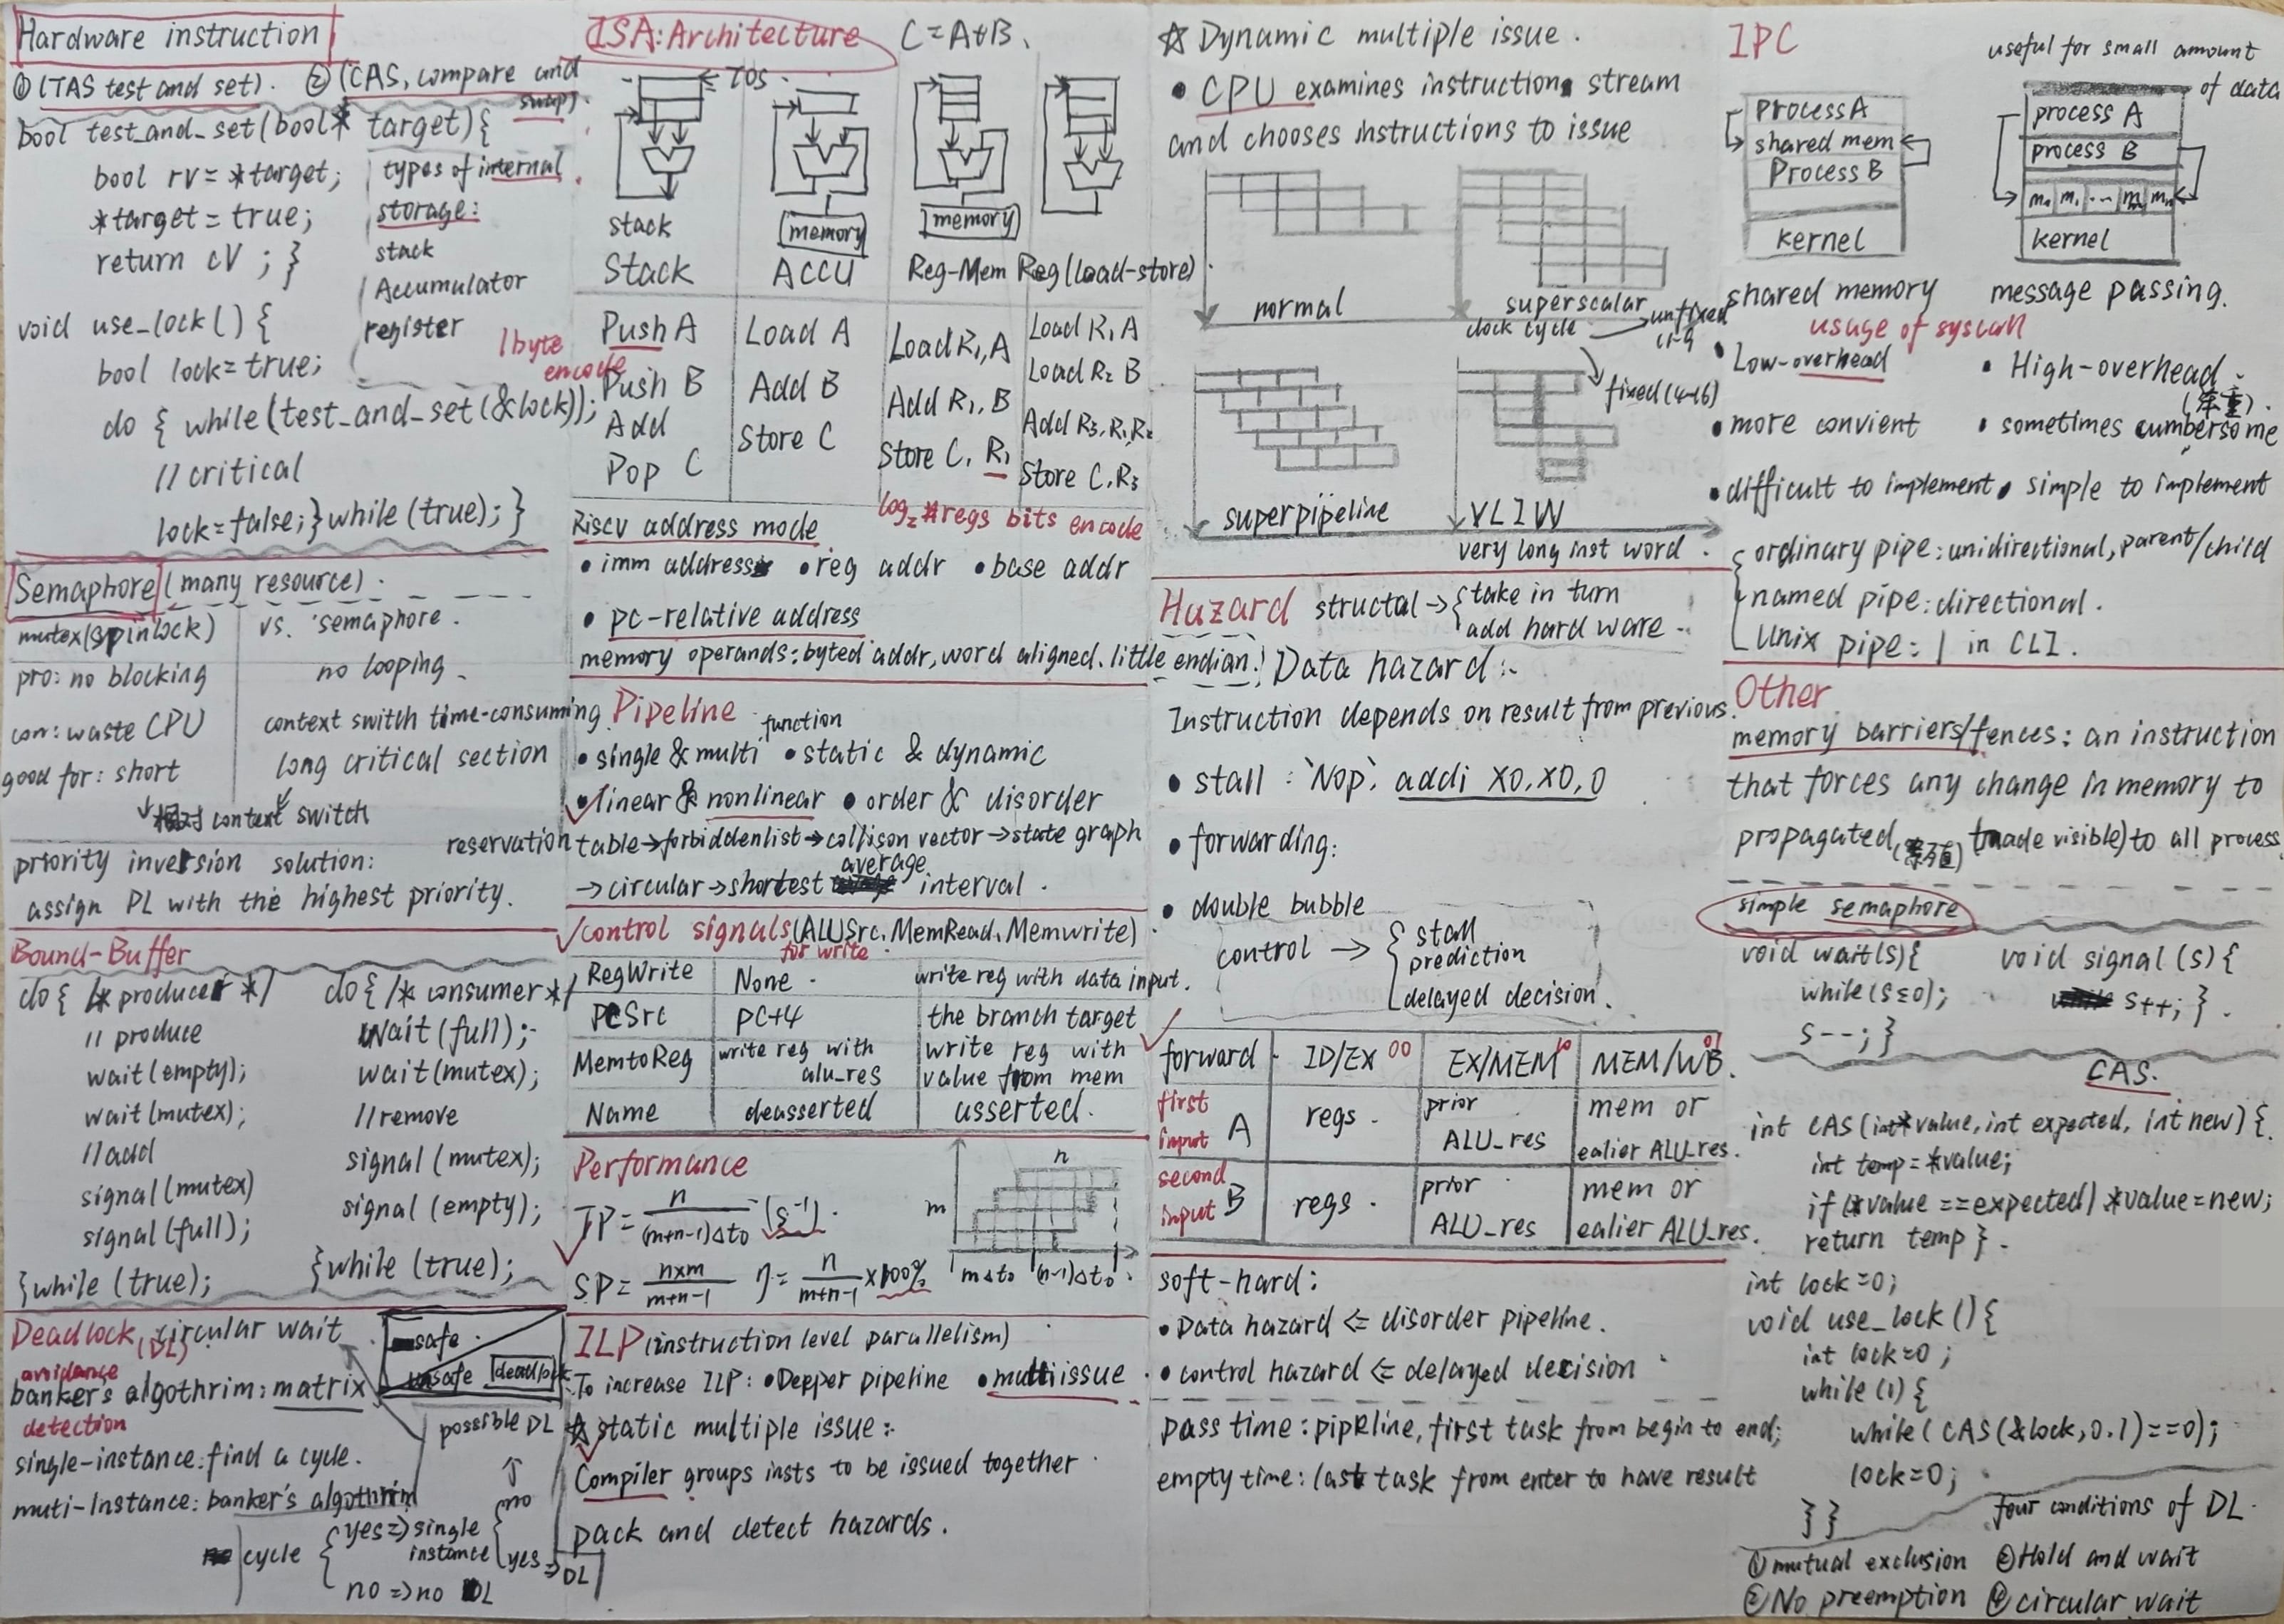 Hardware instruction
①(TAS test and set). ②(CAS, compare and swap).
bool test_and_set(bool* target){
bool rv = *target;
*target = true;
return cV ; }
types of internal
storage:
stack
Accumulator
register
void use_lock() {
bool lock = true;
do { while (test_and_set(&lock));
// critical
lock = false; } while (true); }
Semaphore (many resource).
mutex(spinlock) vs. semaphore.
pro: no blocking no looping
con: waste CPU context switch time-consuming
good for: short long critical section
context switch
priority inversion solution:
assign PL with the highest priority.
Bound-Buffer
do{ /* producer */
// produce
wait(empty);
wait(mutex);
//add
signal(mutex)
signal(full);
}while (true);
do{ /* consumer */
Wait(full);
wait(mutex);
//remove
signal (mutex);
signal (empty);
}while (true);
Deadlock, (DL) circular wait
safe
unsafe deadlock
avoidance
banker's algothrim: matrix
detection
possible DL
single-instance: find a cycle.
muti-Instance: banker's algothrim
cycle { yes => single instance { no
yes => DL
no => no DL
ISA: Architecture C = A+B.
TOS
stack memory memory
Stack ACCU Reg-Mem Reg(Load-store)
1byte encode
Push A
Push B
Add
Pop C
Load A
Add B
Store C
Load R₁, A
Add R₁, B
Store C, R₁
Load R₁ A
Load R₂ B
Add R₃, R₁, R₂
Store C, R₃
log₂ #regs bits encode
Riscv address mode
• imm address • reg addr • base addr
• pc-relative address
memory operands: byted addr, word aligned. little endian.
Pipeline
function
• single & multi • static & dynamic
• linear & nonlinear • order & disorder
reservation table → forbidden list → collison vector → state graph
→ circular → shortest average interval.
control signals (ALUSrc, MemRead, Memwrite)
for write
RegWrite None. write reg with data input.
PcSrc pc+4 the branch target
MemtoReg write reg with alu_res write reg with value from mem
Name deasserted asserted.
Performance
TP = n/(m+n-1)Δt₀ (s⁻¹).
SP = n×m/m+n-1 η = n/m+n-1 ×100%
n
m
mΔt₀ (n-1)Δt₀
ILP (instruction level parallelism)
To increase ILP: • Depper pipeline • multi issue
☆ static multiple issue:
Compiler groups insts to be issued together
pack and detect hazards.
☆ Dynamic multiple issue.
• CPU examines instructions stream
and chooses instructions to issue
normal superscalar
clock cycle → unfixed
fixed (4-16)
superpipeline VLIW
very long inst word
Hazard structal → { take in turn
add hard ware
Data hazard:
Instruction depends on result from previous.
• stall : 'Nop', addi X0, X0, 0
• forwarding:
• double bubble
control → { stall
prediction
delayed decision.
forward ID/EX 00 EX/MEM 10 MEM/WB 01
first input A regs. prior ALU_res mem or ealier ALU_res.
second input B regs. prior ALU_res mem or ealier ALU_res.
soft-hard:
• Data hazard <= disorder pipeline.
• control hazard <= delayed decision
pass time: pipeline, first task from begin to end;
empty time: last task from enter to have result
IPC
useful for small amount of data
Process A
shared mem
Process B
kernel
process A
process B
m₀ m₁ ... m mₙ
kernel
shared memory message passing.
usage of syscall
• Low-overhead • High-overhead
• more convient • sometimes cumbersome
(笨重).
• difficult to implement • simple to implement
ordinary pipe: unidirectional, parent/child
named pipe: directional.
Unix pipe: | in CLI.
Other
memory barriers/fences: an instruction
that forces any change in memory to
propagated (made visible) to all process
simple semaphore
void wait(S){
while (S≤0);
S--; }
void signal (S) {
S++; }.
CAS.
int CAS (int* value, int expected, int new) {
int temp = *value;
if (*value == expected) *value = new;
return temp }.
int lock = 0;
void use_lock () {
int lock = 0 ;
while (1) {
while ( CAS (&lock, 0.1) == 0);
lock = 0;
} }
four conditions of DL
①mutual exclusion ②Hold and wait
③No preemption ④circular wait